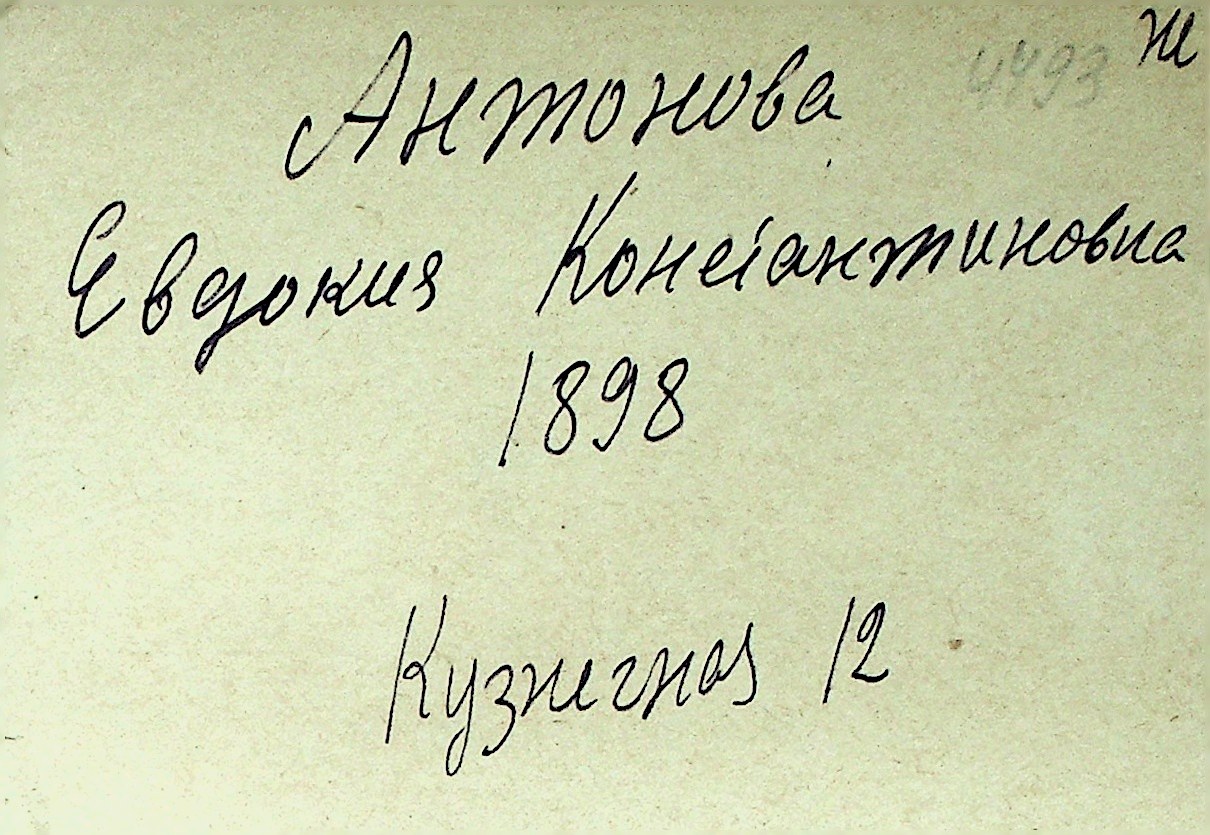 4493 Ж
Антонова
Евдокия Константиновна
1898
Кузнечная 12